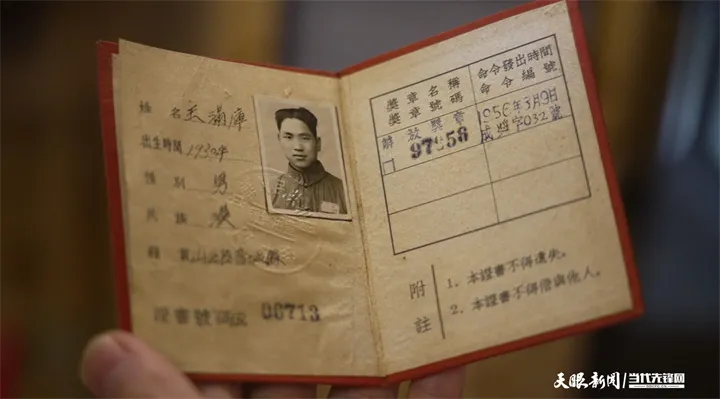 姓名 滿庫
出生時間 1930年
性別 男
民族 漢
籍
證書號碼 00713
獎章名稱
獎章號碼
命令發出時間
命令編號
解放獎章
97958
1956年3月9日
字032號
附註
1. 本證書不得遺失。
2. 本證書不得借與他人。
天眼新闻 当代先锋网